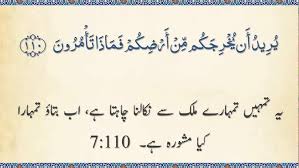 يُرِيدُ أَن يُخْرِجَكُم مِّنْ أَرْضِكُمْ فَمَاذَا تَأْمُرُونَ ﴿١١٠﴾
یہ تمہیں تمہارے ملک سے نکالنا چاہتا ہے، اب بتاؤ تمہارا
کیا مشورہ ہے۔ 7:110